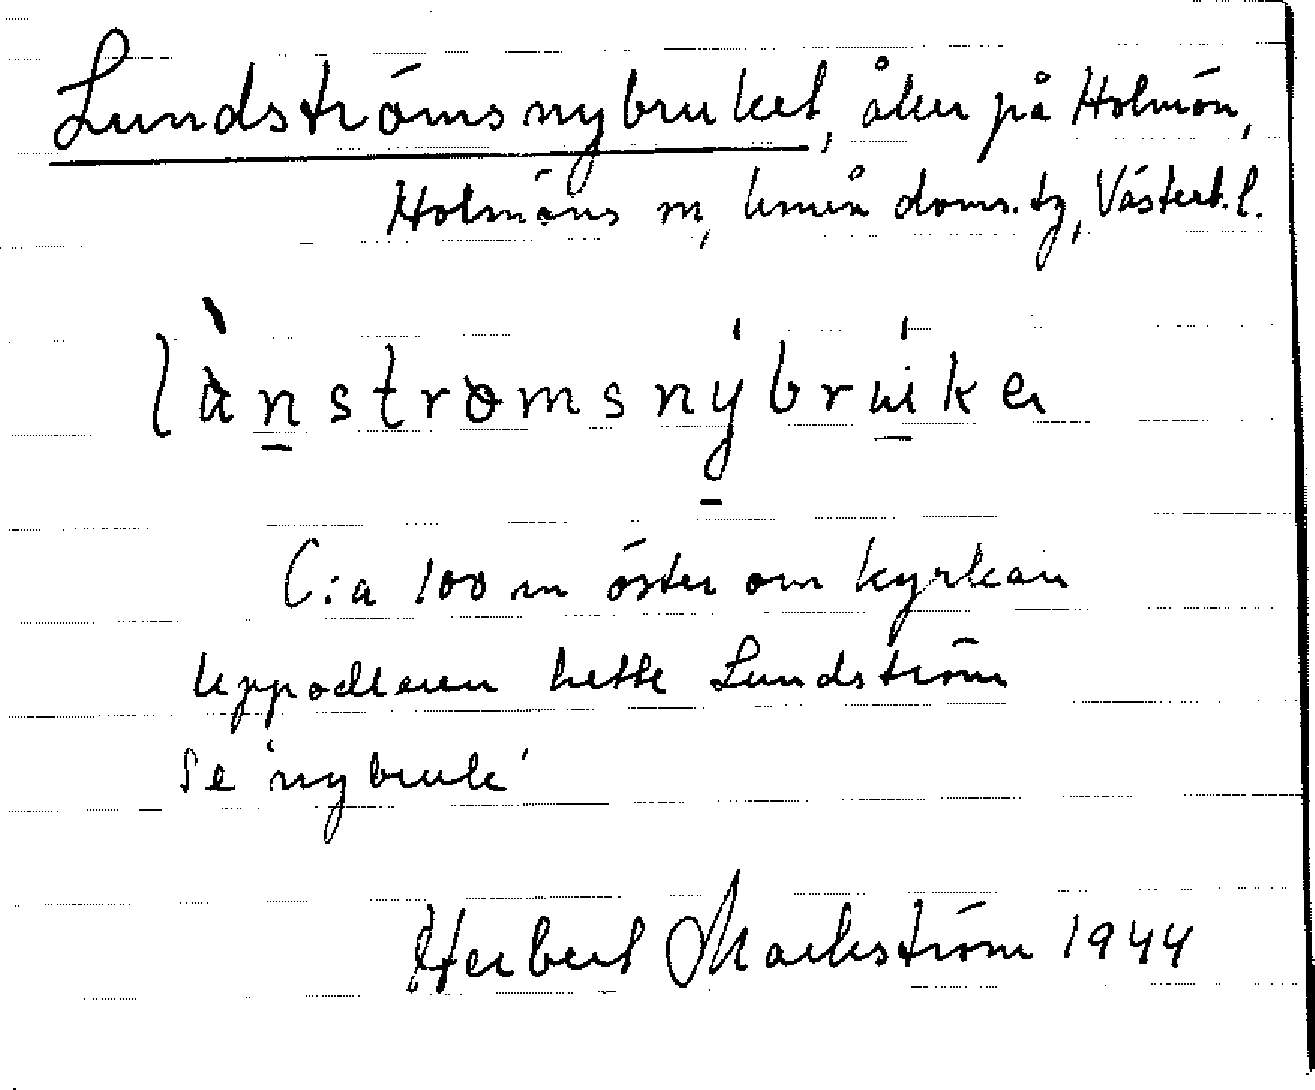 Lundströmsnybruket, åker på Holmön,
Holmöns sn, Umeå doms. tg, Västerb. l.
C:a 100 m öster om kyrkan
Uppodlaren hette Lundström
Se 'nybruk'
Herbert Markström 1944